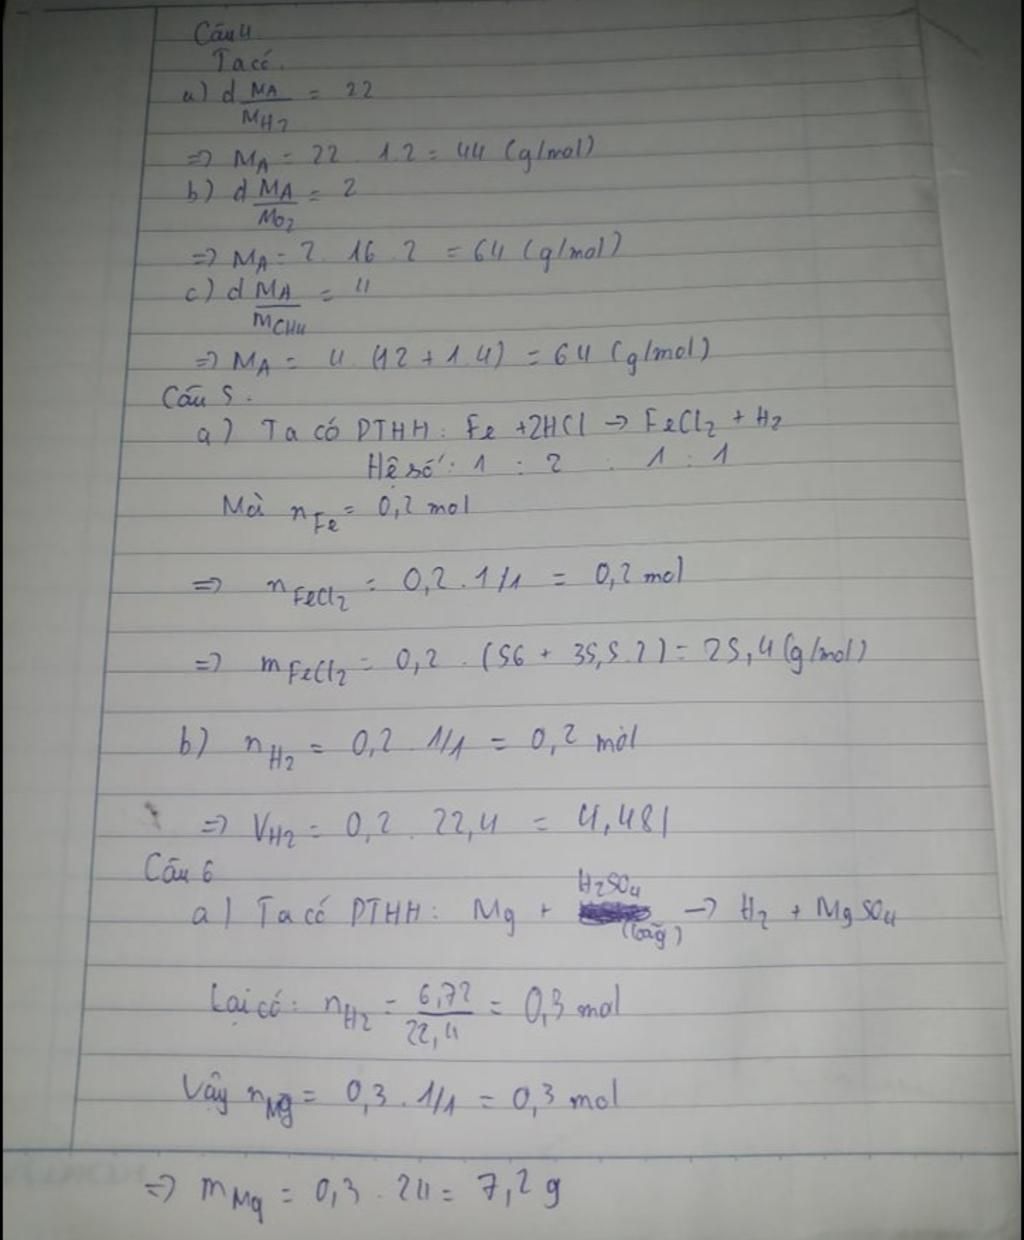 Câu 4
Ta có.
a) d MA/MH2 = 22
=> MA = 22 . 1.2 = 44 (g/mol)
b) d MA/MO2 = 2
=> MA = 2 . 16 . 2 = 64 (g/mol)
c) d MA/MCH4 = 4
=> MA = 4 . (12 + 1.4) = 64 (g/mol)
Câu 5.
a) Ta có PTHH: Fe + 2HCl -> FeCl2 + H2
Hệ số: 1 : 2 : 1 : 1
Mà nFe = 0,2 mol
=> nFeCl2 = 0,2 . 1/1 = 0,2 mol
=> mFeCl2 = 0,2 . (56 + 35,5.2) = 25,4 (g/mol)
b) nH2 = 0,2 . 1/1 = 0,2 mol
=> VH2 = 0,2 . 22,4 = 4,48l
Câu 6
a) Ta có PTHH: Mg + H2SO4 (loãg) -> H2 + MgSO4
Lại có: nH2 = 6,72/22,4 = 0,3 mol
Vậy nMg = 0,3 . 1/1 = 0,3 mol
=> mMg = 0,3 . 24 = 7,2 g